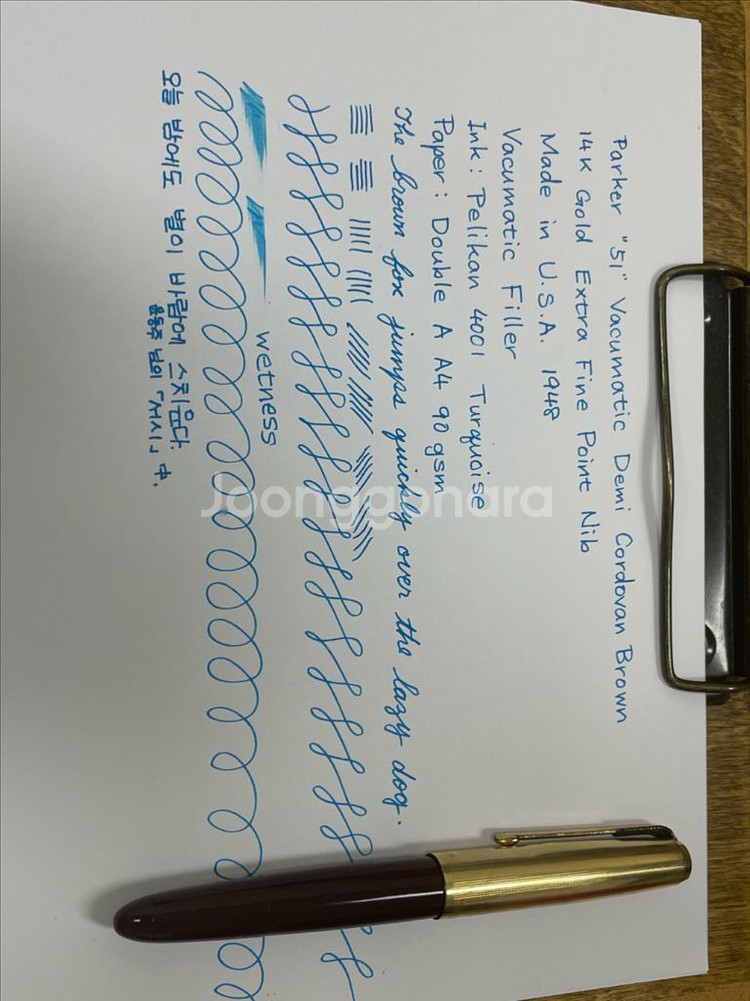 Parker "51" Vacumatic Demi Cordovan Brown
14K Gold Extra Fine Point Nib
Made in U.S.A. 1948
Vacumatic Filler
Ink : Pelikan 4001 Turquoise
Paper : Double A A4 90 gsm
The brown fox jumps quickly over the lazy dog.
wetness
오늘 밤에도 별이 바람에 스치운다.
윤동주 님의 「서시」 中.
Joonggonara